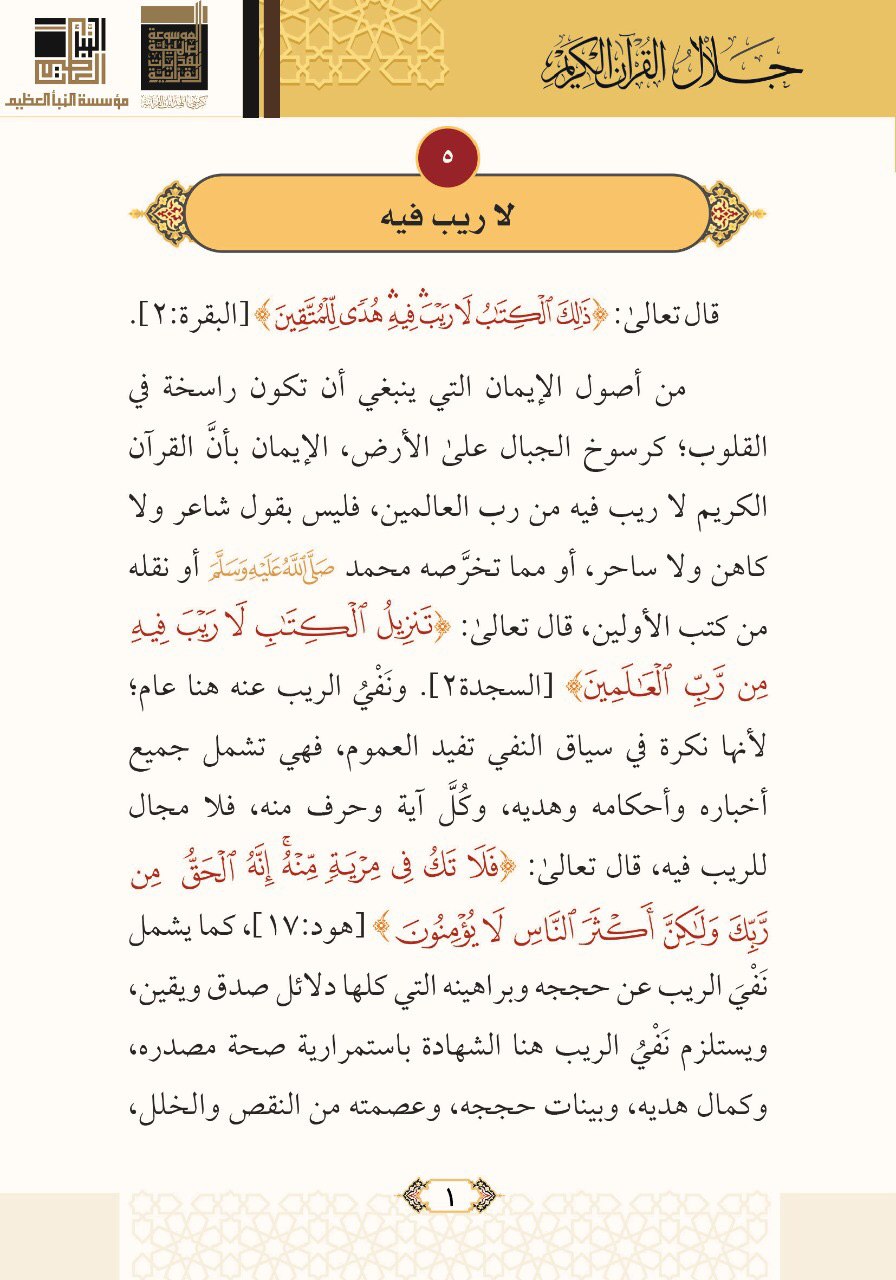 جلال القرآن الكريم
النبأ العظيم
مؤسسة النبأ العظيم
٥
لا ريب فيه
قال تعالىٰ: ﴿ذَٰلِكَ ٱلْكِتَٰبُ لَا رَيْبَۛ فِيهِۛ هُدًى لِّلْمُتَّقِينَ﴾ [البقرة:٢].
من أصول الإيمان التي ينبغي أن تكون راسخة في
القلوب؛ كرسوخ الجبال علىٰ الأرض، الإيمان بأنَّ القرآن
الكريم لا ريب فيه من رب العالمين، فليس بقول شاعر ولا
كاهن ولا ساحر، أو مما تخرَّصه محمد صَلَّى ٱللَّهُ عَلَيْهِ وَسَلَّمَ أو نقله
من كتب الأولين، قال تعالىٰ: ﴿تَنزِيلُ ٱلْكِتَٰبِ لَا رَيْبَ فِيهِ
مِن رَّبِّ ٱلْعَٰلَمِينَ﴾ [السجدة٢]. ونَفْيُ الريب عنه هنا عام؛
لأنها نكرة في سياق النفي تفيد العموم، فهي تشمل جميع
أخباره وأحكامه وهديه، وكُلَّ آية وحرف منه، فلا مجال
للريب فيه، قال تعالىٰ: ﴿فَلَا تَكُ فِى مِرْيَةٍ مِّنْهُۚ إِنَّهُ ٱلْحَقُّ مِن
رَّبِّكَ وَلَٰكِنَّ أَكْثَرَ ٱلنَّاسِ لَا يُؤْمِنُونَ﴾ [هود:١٧]، كما يشمل
نَفْيَ الريب عن حججه وبراهينه التي كلها دلائل صدق ويقين،
ويستلزم نَفْيُ الريب هنا الشهادة باستمرارية صحة مصدره،
وكمال هديه، وبينات حججه، وعصمته من النقص والخلل،
١